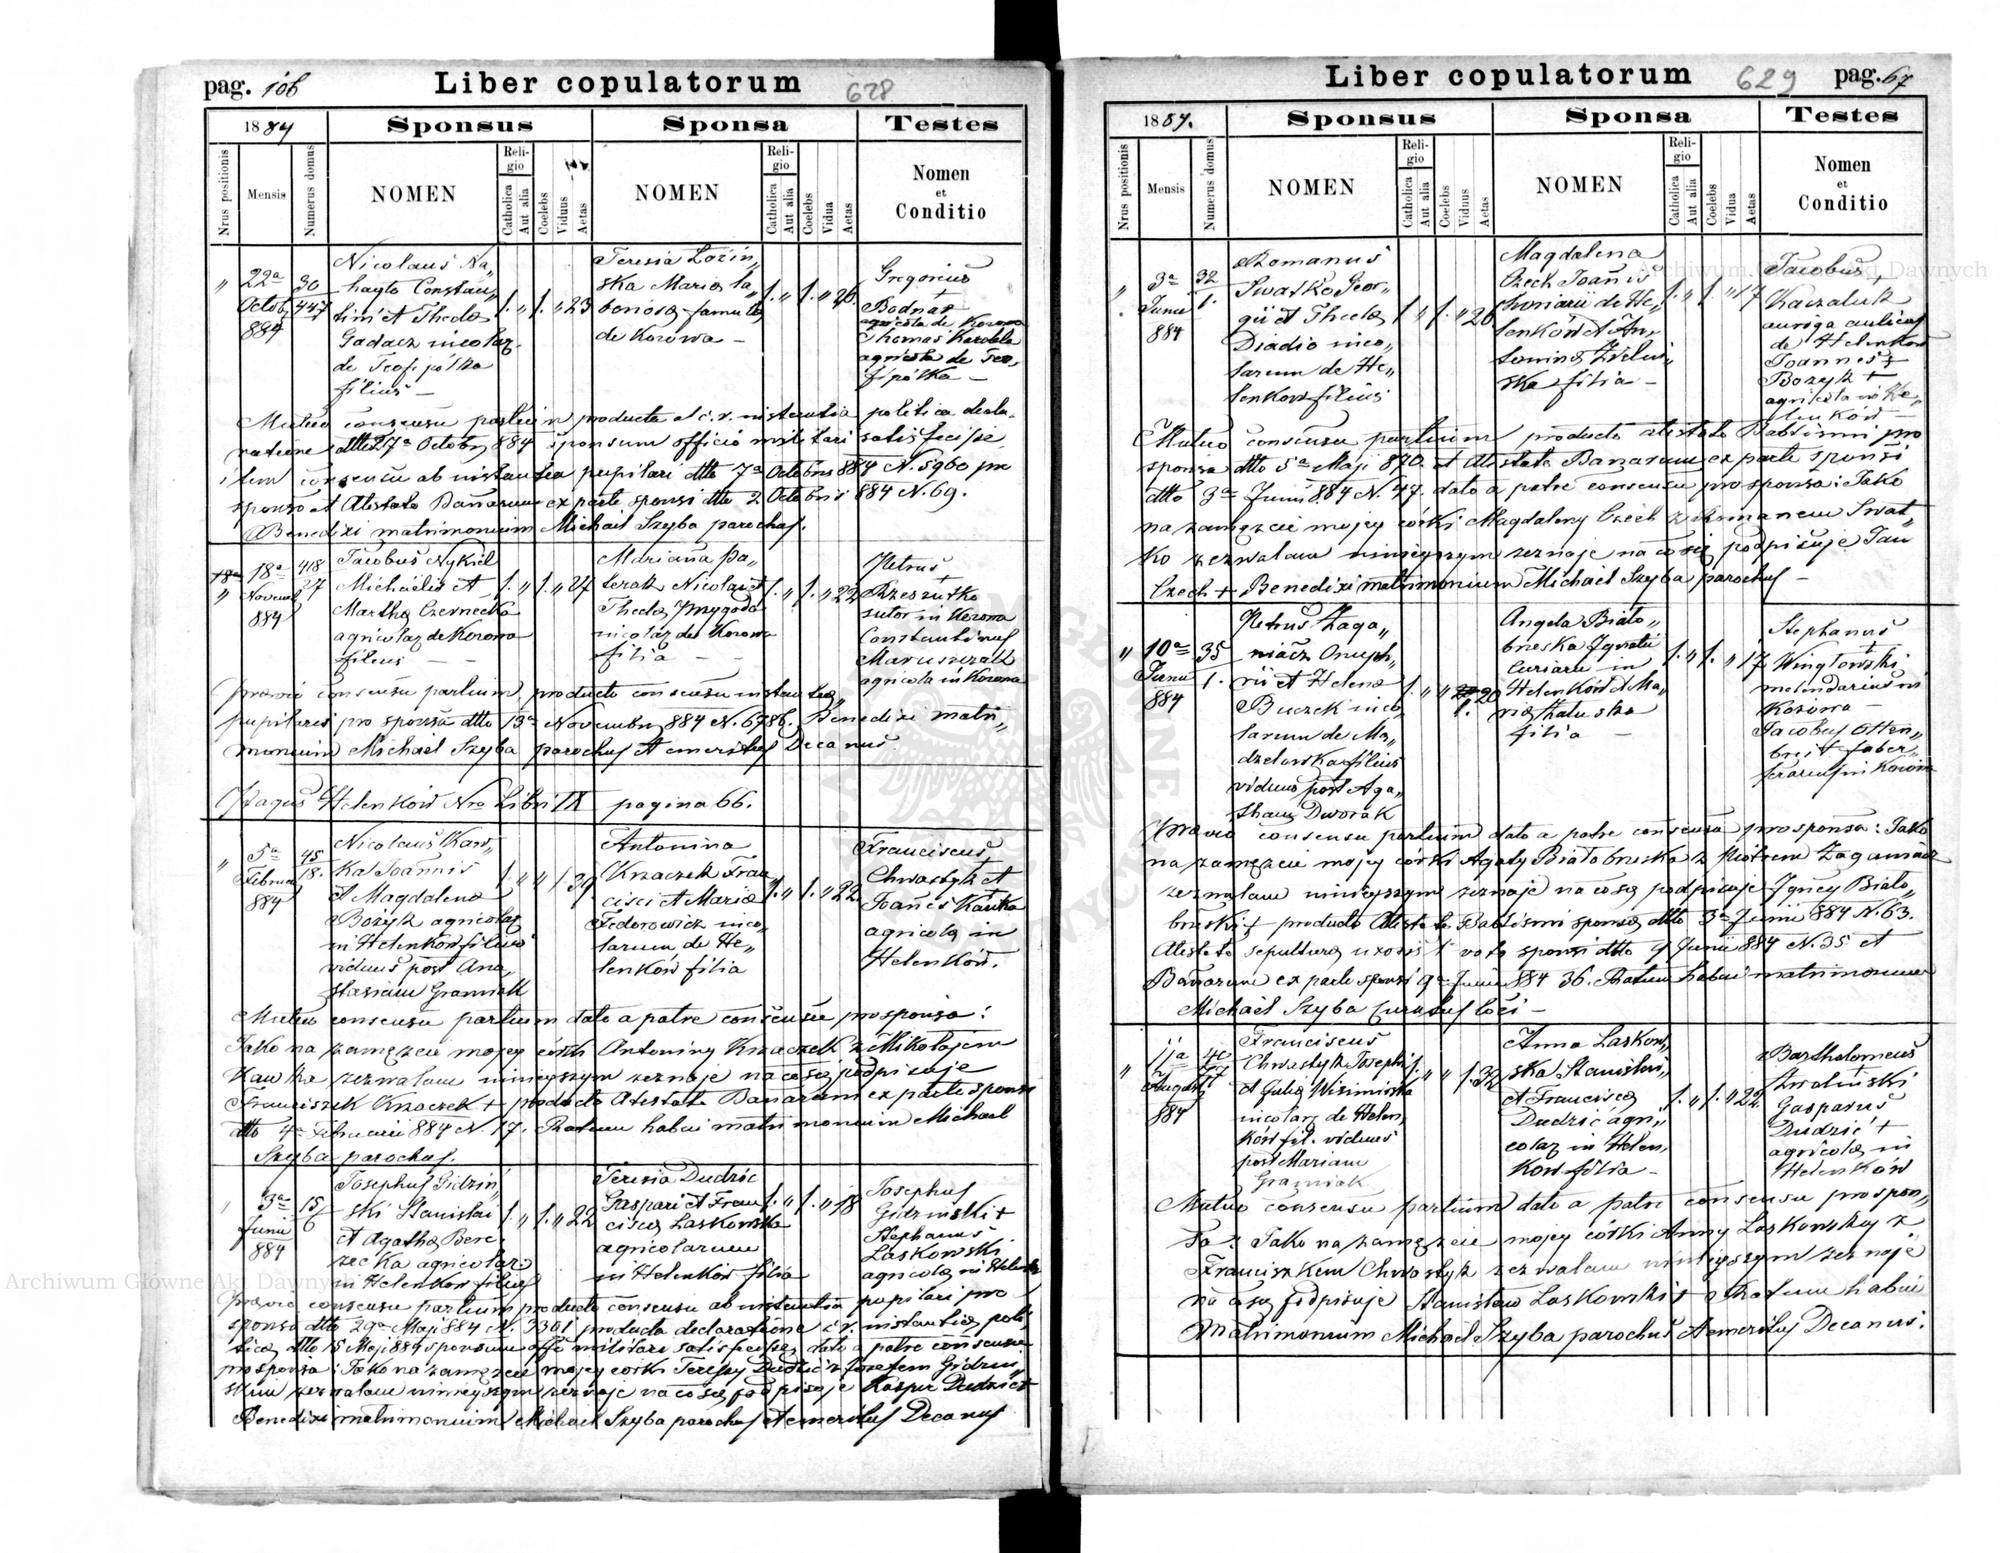 pag. 106 Liber copulatorum 628
1884 Sponsus Sponsa Testes
Nrus positionis Mensis Numerus domus NOMEN Religio Catholica Aut alia Coelebs Viduus Aetas NOMEN Religio Catholica Aut alia Coelebs Vidua Aetas Nomen et Conditio
" 22a Octob 884
30 447
Nicolaus Na„
hayło Constan„
tini et Theclæ
Gadacz incolar.
de Teofipólka
filius –
1. " 1. " 23
Teresia Łozin„
ska Mariæ la„
boriosæ famulæ
de Kozowa –
1. " 1. " 26.
Gregorius
+
Bodnar
agricola de Kozowa
Thomas Karobla
agricola de Teo„
fipólka –
Mutuo consensu partium producta a c. r. instantia politica decla„
ratione ddto 27a Octobr 884 sponsum officio militari satisfecisse
item consensu ab instantia pupilari dtto 7a Octobris 884 N. 5960 pro
sponso et Atestato Banorum ex parte sponsi dtto 2. Octobris 884 N. 69.
Benedixi matrimonium Michael Szyba parochus.
18a " 18a Novemb 884
418 27
Jacobus Nykiel
Michaelis et
Marthæ Czernecka
agricolar de Kozowa
filius – –
1. " 1. " 27
Marianna Pa„
terak Nicolai et
Theclæ Przygoda
incolar de Kozowa
filia – –
1. " 1. " 22
Petrus
+
Krzeszutko
sutor in Kozowa
Constantinus
Maruszczak
agricola in Kozowa
Prævio consensu partium, producto consensu instantiæ
pupilaris pro sponsa dtto 13a Novembr 884 N. 6786. Benedixi matri„
monium Michael Szyba parochus et emeritus Decanus.
Pagus Helenków Nro Libri IX pagina 66.
" 5a Februar 884
45 18.
Nicolaus Kaw„
ka Joannis
et Magdalenæ
Bożyk agricolar
in Helenków filius
viduus post Ana„
stasiam Gramiak
1. " " 1 39
Antonina
Krzaczek Fran„
cisci et Mariæ
Fedorowicz inco„
larum de He„
lenków filia
1. " 1. " 22.
Franciscus
+
Chwastyk et
Joannes Kawka
agricolæ in
Helenków.
Mutuo consensu partium dato a patre consensu pro sponsa:
Jako na zamęzcie mojej córki Antoniny Krzaczek z Mikołajem
Kawka zezwalam niniejszym zeznaje na co się podpisuje
Franciszek Krzaczek + producto Atestato Banorum ex parte sponsi
dtto 4a Februarii 884 N. 17. Ratum habui matrimonium Michael
Szyba parochus.
" 3a Junii 884
15 6
Josephus Gidzin„
ski Stanislai
et Agathæ Bere„
zecka agricolar
in Helenków filius
1. " 1. " 22
Teresia Dudzic
Gaspari et Fran„
ciscæ Laskowska
agricolarum
in Helenków filia
1. " 1. " 18
Josephus
Gidzinski +
Stephanus
Laskowski
agricolæ in Helenków
Prævio consensu partium producto consensu ab instantia pupilari pro
sponsa dtto 29a Maji 884 N. 3301 producta declaratione c. r. instantiæ poli„
ticæ dtto 15 Maji 884 sponsum offo militari satisfecisse, dato a patre consensu
pro sponsa: Jako na zamęzcie mojej corki Teresy Dudzic z Jozefem Gidzin„
skim zezwalam niniejszym zeznaje na co się podpisuje Kasper Dudzic +
Benedixi matrimonium Michael Szyba parochus et emeritus Decanus
Liber copulatorum 629 pag. 67
1884. Sponsus Sponsa Testes
Nrus positionis Mensis Numerus domus NOMEN Religio Catholica Aut alia Coelebs Viduus Aetas NOMEN Religio Catholica Aut alia Coelebs Vidua Aetas Nomen et Conditio
" 3a Junii 884
32 1.
Romanus
Swatko Geor„
gii et Theclæ
Diadio inco„
larum de He„
lenków filius
1 " 1. " 26
Magdalena
Czech Joannis
de He„
lenków et An„
toninæ Zielin„
ska filia –
1. " 1. " 17
Jacobus
Kaczaluk
auriga aulicus
de Helenków
Joannes +
Bożyk +
agricola in He„
lenków –
Mutuo consensu partium producto atestato Babtismi pro
sponsa dtto 5a Maji 870. et Atestato Banorum ex parte sponsi
dtto 3a Junii 884 N. 47. dato a patre consensu pro sponsa: Jako
na zamęzcie mojej córki Magdaleny Czech z Romanem Swat„
ko zezwalam niniejszym zeznaje na co się podpisuje Jan
Czech + Benedixi matrimonium Michael Szyba parochus –
" 10a Junii 884
35 1.
Petrus Zaga„
niacz Onuph„
rii et Helenæ
Buczek inco„
larum de Ma„
dzelowka filius
viduus post Aga„
tham Dworak
1. " " 1. 20
Angela Biało„
brzeska Ignatii
Curiarii in
Helenków et Ma„
riæ Hałuszka
filia –
1. " 1. " 17
Stephanus
+
Winglowski
molendarius in
Kozowa –
Jacobus Otten„
breit faber
ferarius in Kozowa
Prævio consensu partium dato a patre consensu pro sponsa: Jako
na zamęzcie mojej córki Agaty Białobrzeska z Piotrem Zaganiacz
zezwalam niniejszym zeznaje na co się podpisuje Ignacy Biało„
brzeski + producto Atestato Babtismi sponsæ dtto 3a Junii 884 N. 63.
Atestato sepulturæ uxoris 1 voto sponsi dtto 9 Junii 884 N. 35 et
Banorum ex parte sponsi 9a Junii 884 36. Ratum habui matrimonium
Michael Szyba Curatus loci –
" 11a Augusti 884
Franciscus
Chwastyk Josephi
et Juliæ Wisiniwska
incolar de Helen„
ków fil. viduus
post Mariam
Gramiak
1. " " 1. 32
Anna Laskow„
ska Stanislai
et Franciscæ
Dudzic agri„
colar in Helen„
ków filia –
1. " 1. " 22
Bartholomeus
+
Zwolinski
Gasparus
Dudzic +
agricolæ in
Helenków
Mutuo consensu partium dato a patre consensu pro spon„
sa: Jako na zamęzcie mojej córki Anny Laskowskiej z
Franciszkiem Chwastyk zezwalam niniejszym zeznaje
na co się podpisuje Stanisław Laskowski + Ratum habui
Matrimonium Michael Szyba parochus et emeritus Decanus.
Archiwum Główne Akt Dawnych
Archiwum Główne Akt Dawnych